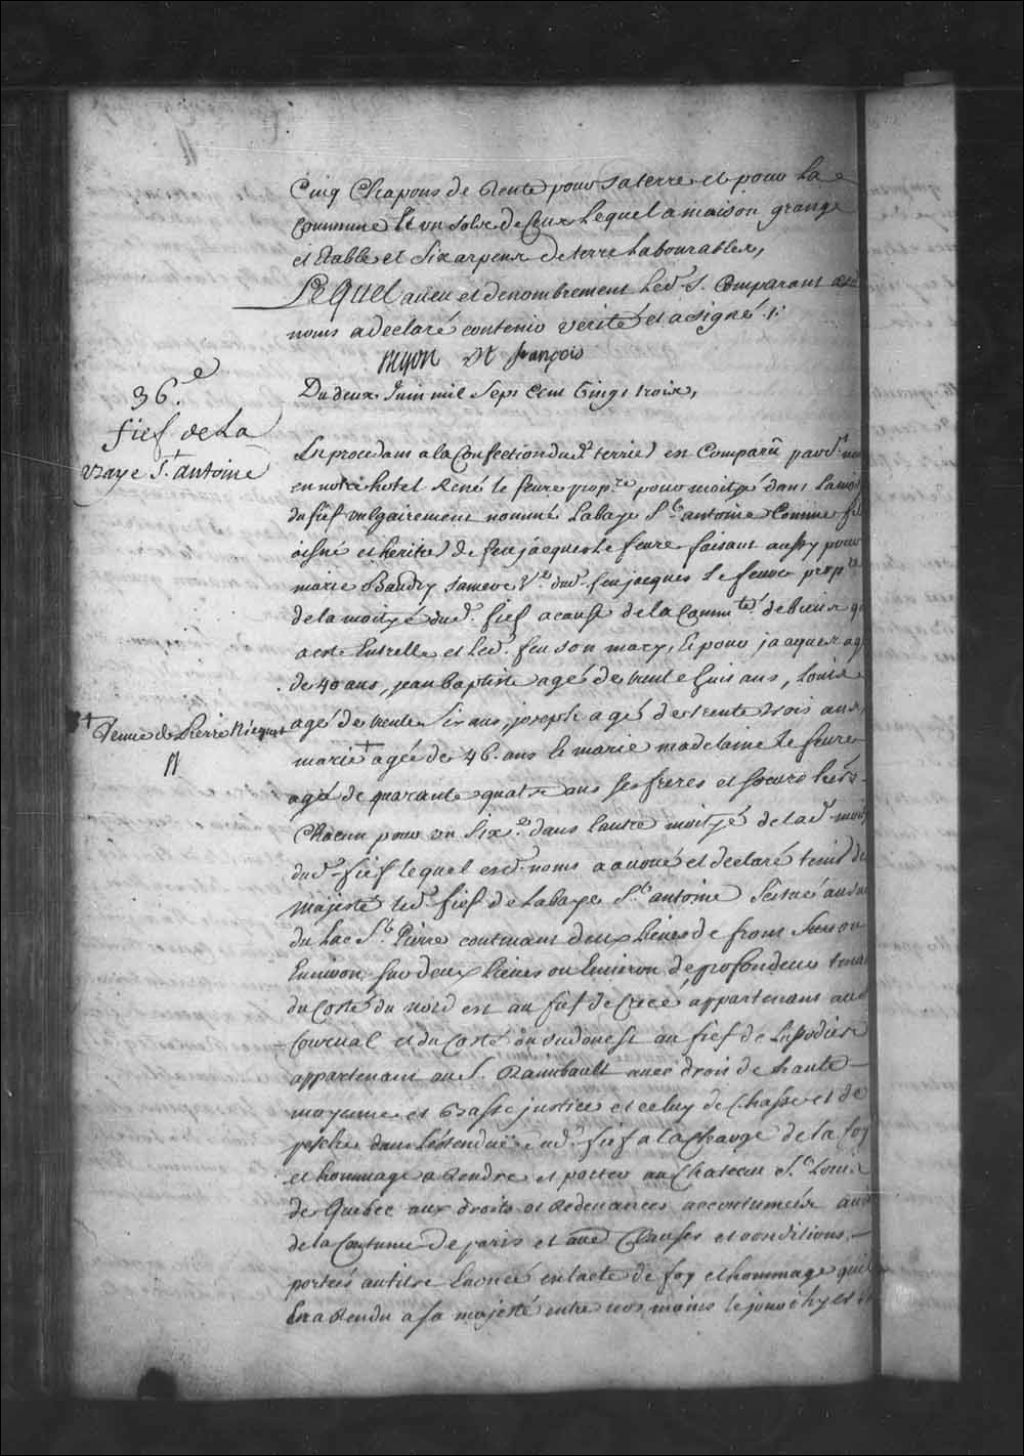 Cinq Chapons de Rente pour sa terre et pour La
Commune Et un sol de Cens Lequel a maison grange
et Etable et Six arpens de terre Labourables,
LEQUEL aveu et denombrement Led. S. Comparant
noms a declaré contenir verité et a signé
ngon st françois
Du deux Juin mil Sept Cent Vingt trois,
36.e
fief de La
Baye S.t antoine
En procedant a la Confection dud. terrier est Comparu pard.t nous
en notre hotel René le feure prop.re pour moityé dans La moi
du fief vulgairement nommé Labaye S.t antoine Comme fils
aisné et heritier de feu jacques Le feure faisant aussy pour
marie Baudry sa mere V.e dud. feu jacques Le feure prop.re
de la moityé dud. fief a cause de la Commu.té de biens qui
a esté Entrelle et Led. feu son mary, Et pour jacques agé
de 40 ans, jean baptiste agé de trente huit ans, Louis
agé de trente Six ans, joseph agé de trente trois ans,
+ Veuve de Pierre
marie + agée de 46. ans Et marie madelaine Le feure
agée de quarante quatre ans ses freres et soeurs
Chacun pour un Six.e dans lautre moityé de lad. moityé
dud. fief lequel esd. noms a avoué et declaré tenir de
Majesté Led. fief de Labaye S.t antoine Scitué au
du Lac S.t Pierre contenant deux Lieues de front
Environ Sur deux Lieues ou Environ de profondeur
du Costé du nord est au fief de appartenant aud
Cournal et du Costé du sudouest au fief de Lussodiere
appartenant au S. Raimbault avec droit de haute
moyenne et Basse justice et celuy de Chasse et de
pesche dans Lestenduë dud. fief a la charge de la foy
et hommage a Rendre et porter au Chateau S.t Louis
de Quebec aux droits et Redevances accoutumées
de la Coutume de paris et aux Clauses et conditions
portées au titre Enoncé en lacte de foy et hommage quil
En a Rendu a sa majesté entre nos mains le jour